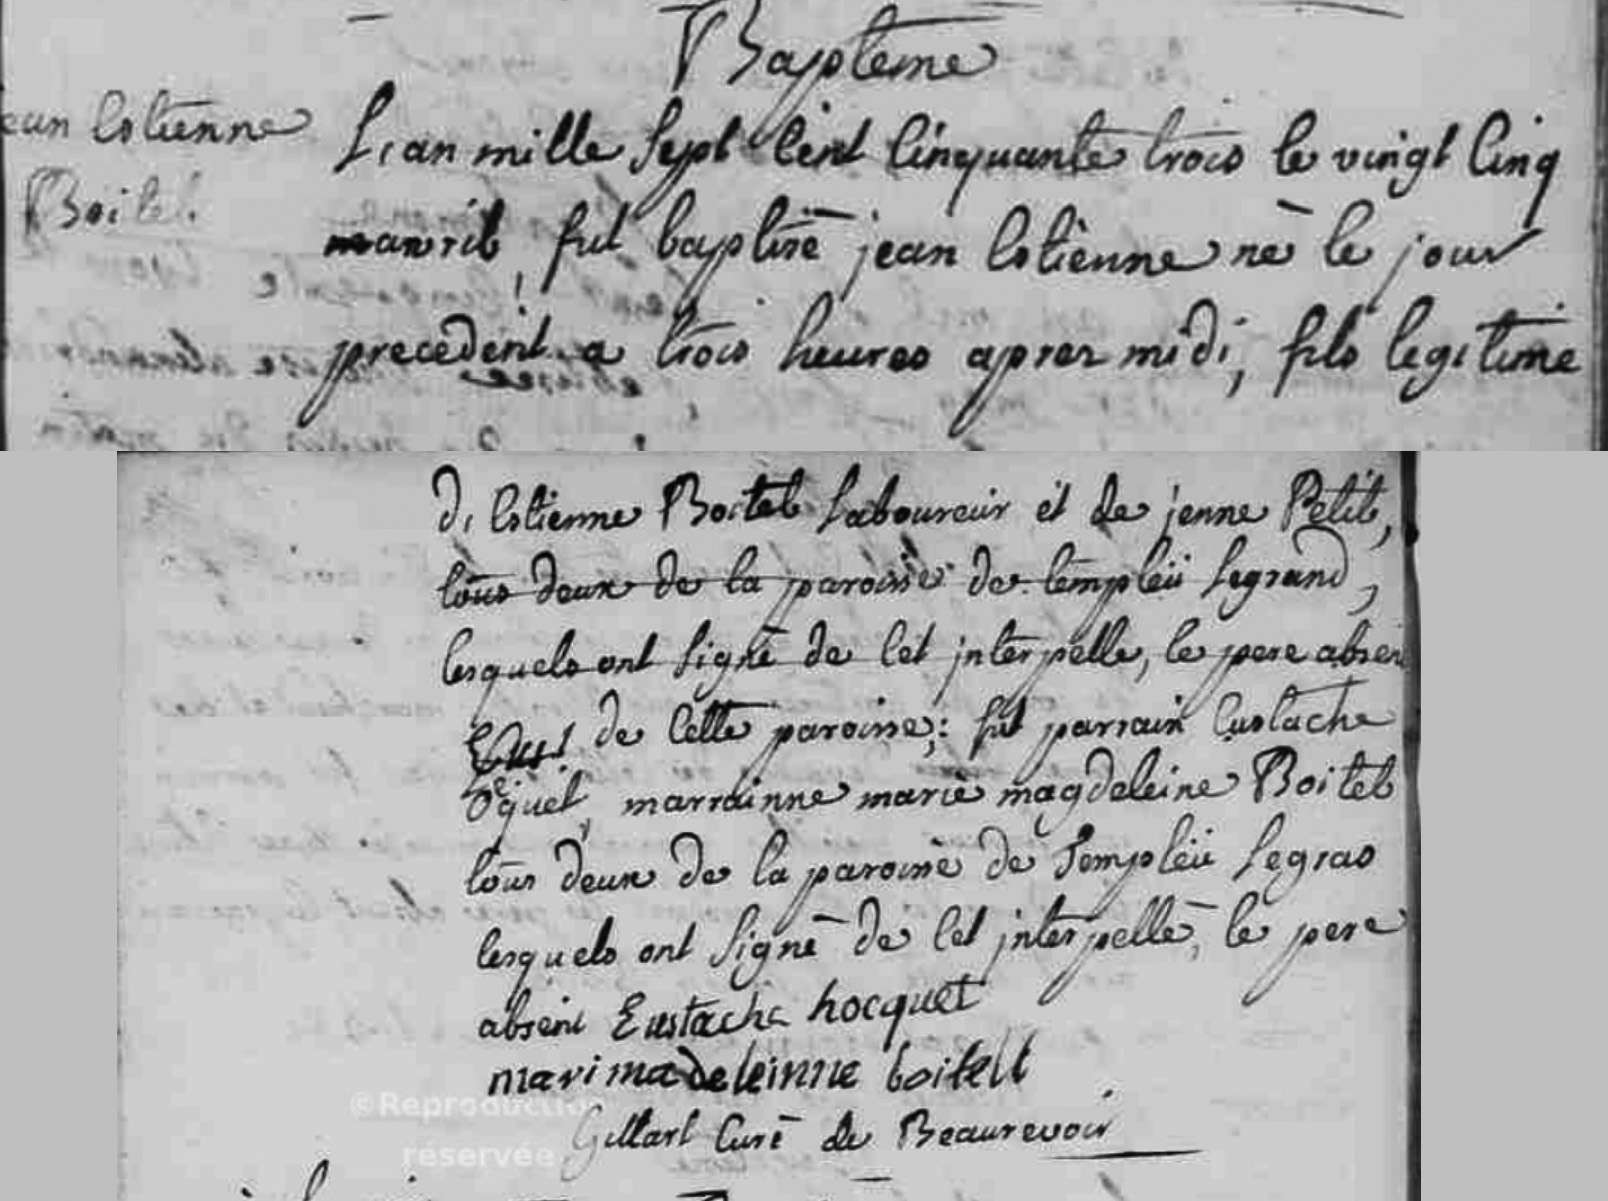 Bapteme
jean Estienne
Boitel
L'an mille sept cent cinquante trois le vingt cinq
avril, fut baptisé jean Estienne né le jour
precedent a trois heures apres midi, fils legitime
de Estienne Boitel Laboureur et de jenne Petit,
tous deux de la paroisse de templeü Legrand,
lesquels ont signé de cet interpelle, le pere absen
de cette paroisse; fut parrain Eustache
oquet, marrainne marie magdeleine Boitel
tous deux de la paroisse de Templeü Legras
lesquels ont signé de cet interpellé, le pere
absent Eustache hocquet
mari madeleinne boitell
Gillart Curé de Beaurevoir
©Reproduction
réservée